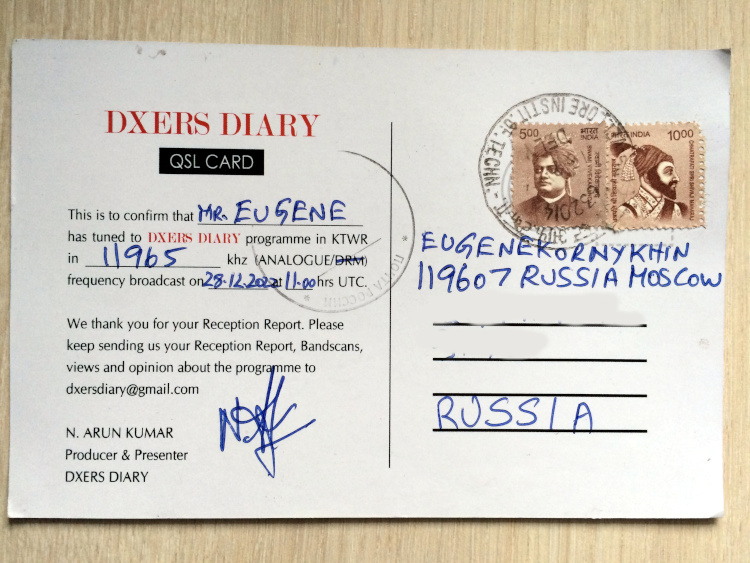 DXERS DIARY
QSL CARD
This is to confirm that MR. EUGENE
has tuned to DXERS DIARY programme in KTWR
in 11965 khz (ANALOGUE/DRM)
frequency broadcast on 28.12.2022 at 11.00 hrs UTC.
We thank you for your Reception Report. Please
keep sending us your Reception Report, Bandscans,
views and opinion about the programme to
dxersdiary@gmail.com
N. ARUN KUMAR
Producer & Presenter
DXERS DIARY
ПОЧТА РОССИИ
INSTIT. OF TECHN.
500 भारत
INDIA
INDIA 1000
EUGENE KORNYKHIN
119607 RUSSIA MOSCOW
RUSSIA